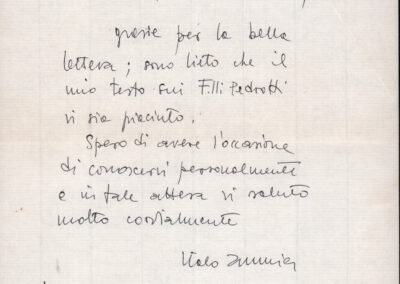 grazie per la bella
lettera; sono lieto che il
mio testo sui F.lli Pedrotti
vi sia piaciuto.
Spero di avere l'occasione
di conoscervi personalmente
e in tale attesa vi saluto
molto cordialmente
Italo Zannier